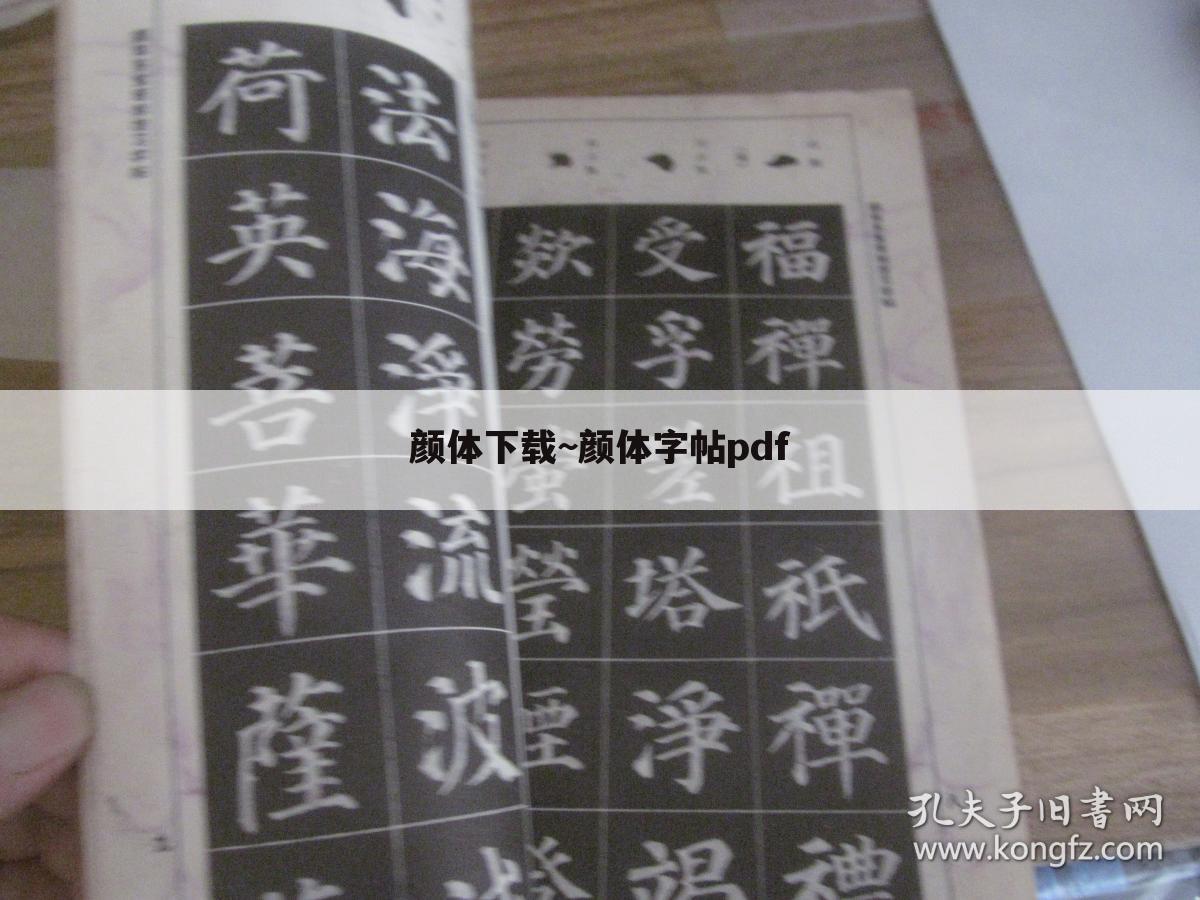 法海淨流波
荷英菩華薩
福禪祖祇禪禮
受孚差塔淨竭
欻勞瑩
颜体下载~颜体字帖pdf
孔夫子旧書网
www.kongfz.com